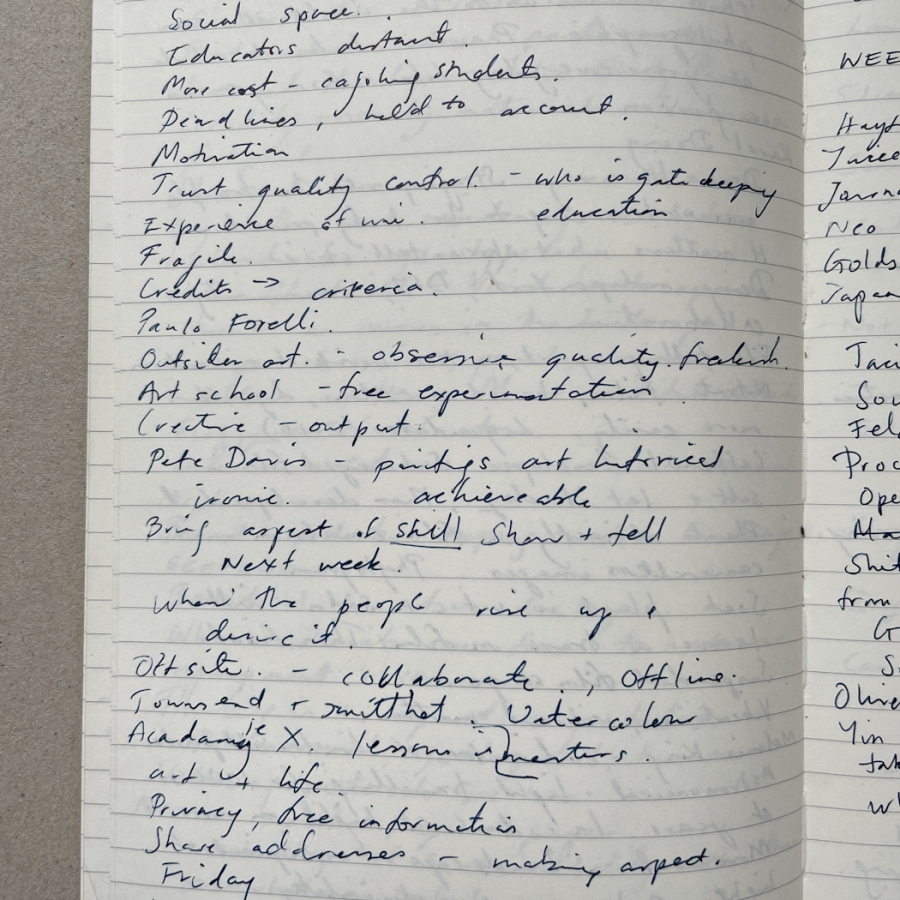 Social space.
Educators distant.
More cost - cajoling students.
Deadlines, held to account.
Motivation
Trust quality control. - who is gate keeping
Experience of uni. education
Fragile.
Credits → criteria.
Paulo Forelli.
Outsider art. - obsessive quality. freakish.
Art school - free experimentation
Creative - output.
Pete Davis - paintings art historical
ironic. achieveable
Bring aspect of skill show + tell
Next week.
When the people rise up +
desire it.
Offsite. - collaborate, offline.
Townsend + . Watercolour
X. lessons in masters.
art + life.
Privacy, free information
Share addresses - making aspect.
Friday
WEE
Neo
Golds
Japan
Sou
Fel
Proc
Ope
Shit
from
G
S
Olive
Yin